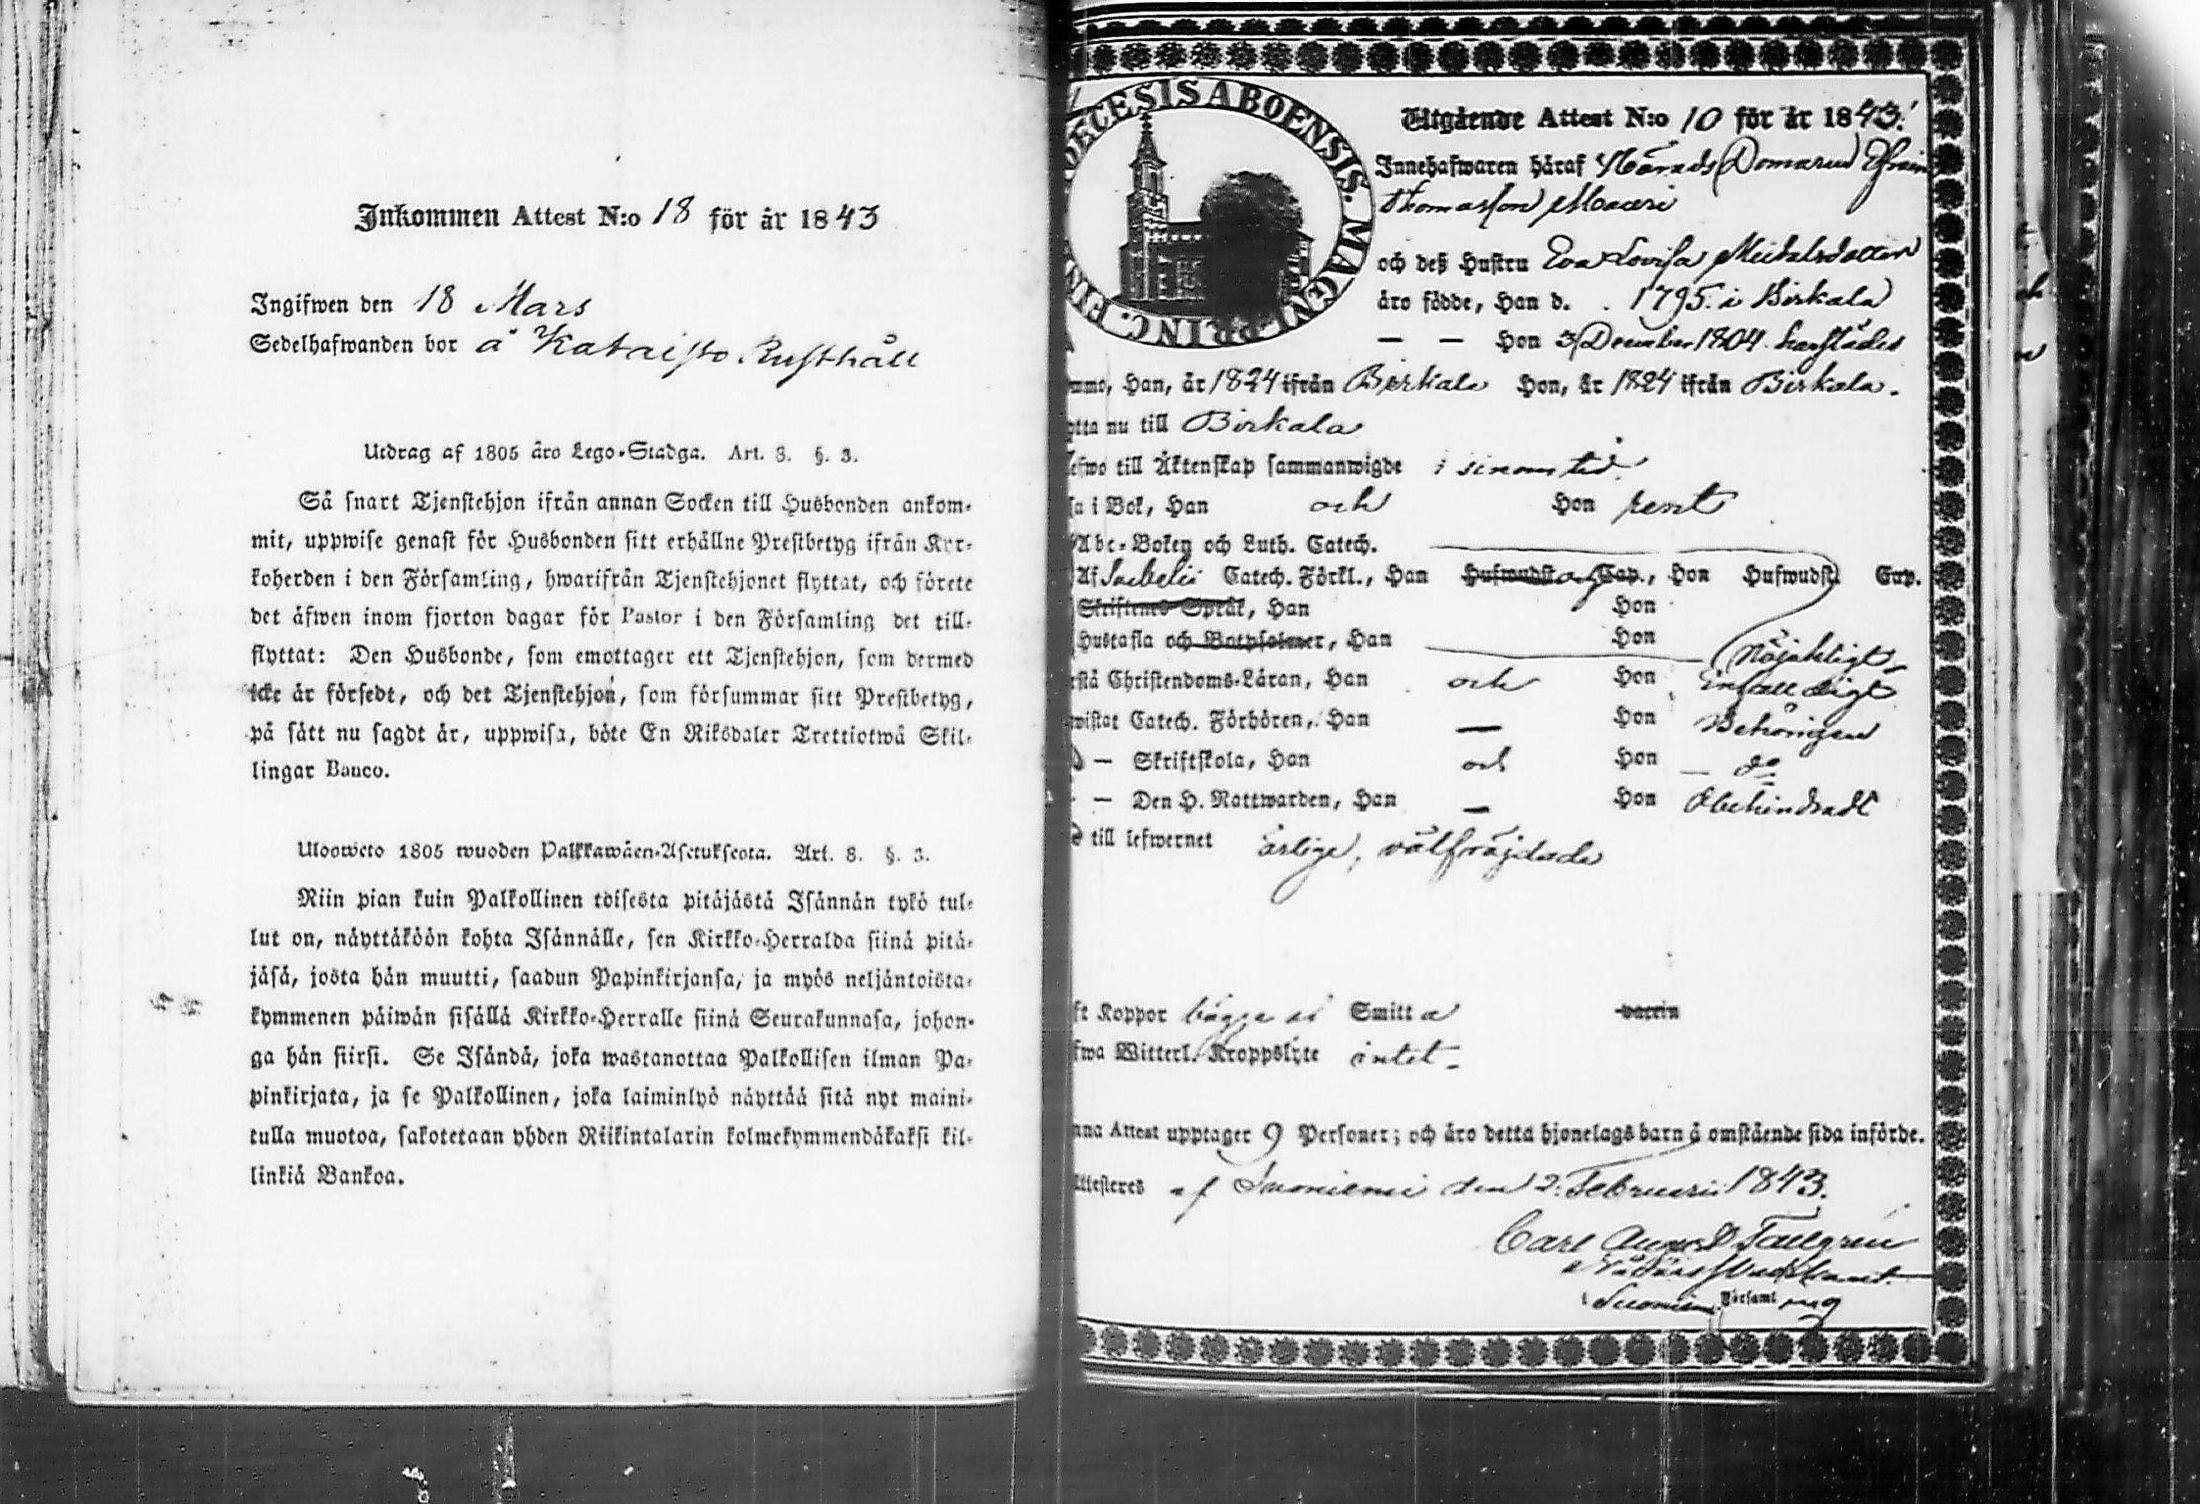 Inkommen Attest N:o 18 för år 1843
Ingifwen den 18 Mars
Sedelhafwanden bor å Kataisto Rusthåll
Utdrag af 1805 års Lego-Stadga. Art. 8. §. 3.
Så snart Tjenstehjon ifrån annan Socken till Husbonden ankom-
mit, uppwise genast för Husbonden sitt erhållne Prestbetyg ifrån Kyr-
koherden i den Församling, hwarifrån Tjenstehjonet flyttat, och förete
det äfwen inom fjorton dagar för Pastor i den Församling det till-
flyttat: Den Husbonde, som emottager ett Tjenstehjon, som dermed
icke är försedt, och det Tjenstehjon, som försummar sitt Prestbetyg,
på sätt nu sagdt är, uppwisa, böte En Riksdaler Trettiotwå Skil-
lingar Banco.
Ulosweto 1805 wuoden Palkkawäen-Asetuksesta. Art. 8. §. 3.
Niin pian kuin Palkollinen toisesta pitäjästä Isännän tykö tul-
lut on, näyttäköön kohta Isännälle, sen Kirkko-Herralda siinä pitä-
jäsä, josta hän muutti, saadun Papinkirjansa, ja myös neljäntoista-
kymmenen päiwän sisällä Kirkko-Herralle siinä Seurakunnasa, johon-
ga hän siirsi. Se Isändä, joka wastanottaa Palkollisen ilman Pa-
pinkirjata, ja se Palkollinen, joka laiminlyö näyttää sitä nyt maini-
tulla muotoa, sakotetaan yhden Riikintalarin kolmekymmendäkaksi kil-
linkiä Bankoa.
OECESIS ABOENSIS. MAGNI PRINC. FIN
Utgående Attest N:o 10 för år 1843.
Innehafwaren häraf Härads Domaren Efraim
Thomasson Maceri
och deß Hustru Eva Lovisa Michelsdotter
äro födde, Han d. . 1795. i Birkala
— — Hon 3 December 1804. härstädes
mmo, Han, år 1824 ifrån Birkala Hon, år 1824 ifrån Birkala.
ytta nu till Birkala
efwo till Äktenskap sammanwigde i sinom tid.
sa i Bok, Han och Hon rent
Abc-Boken och Luth. Catech.
Af Svebelii Catech. Förkl., Han Hufwudst. och Cap., Hon Hufwudst. Cap.
Skriftenes Språk, Han Hon
Hustafla och Botpsalmer, Han Hon Nöjaktigt
rstå Christendoms-Läran, Han och Hon Enfalldigt
wistat Catech. Förhören, Han — Hon Behörigen
— Skriftskola, Han och Hon — do
— Den H. Nattwarden, Han — Hon Obehindradt
till lefwernet ärlige, välfräjdade
ft Koppor bägge Smitta vaccin
fwa Witterl. Kroppslyte intet.
nna Attest upptager 9 Personer; och äro detta hjonelags barn å omstående sida införde.
Attesteres af Suoniemi den 2. Februarii 1843.
Carl August Tallgren
i Suoniemi Församling